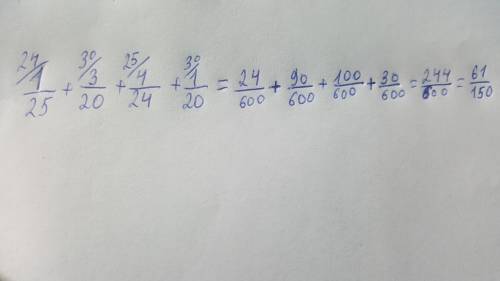 24/1/25 + 30/3/20 + 25/4/24 + 30/1/20 = 24/600 + 90/600 + 100/600 + 30/600 = 244/600 = 61/150